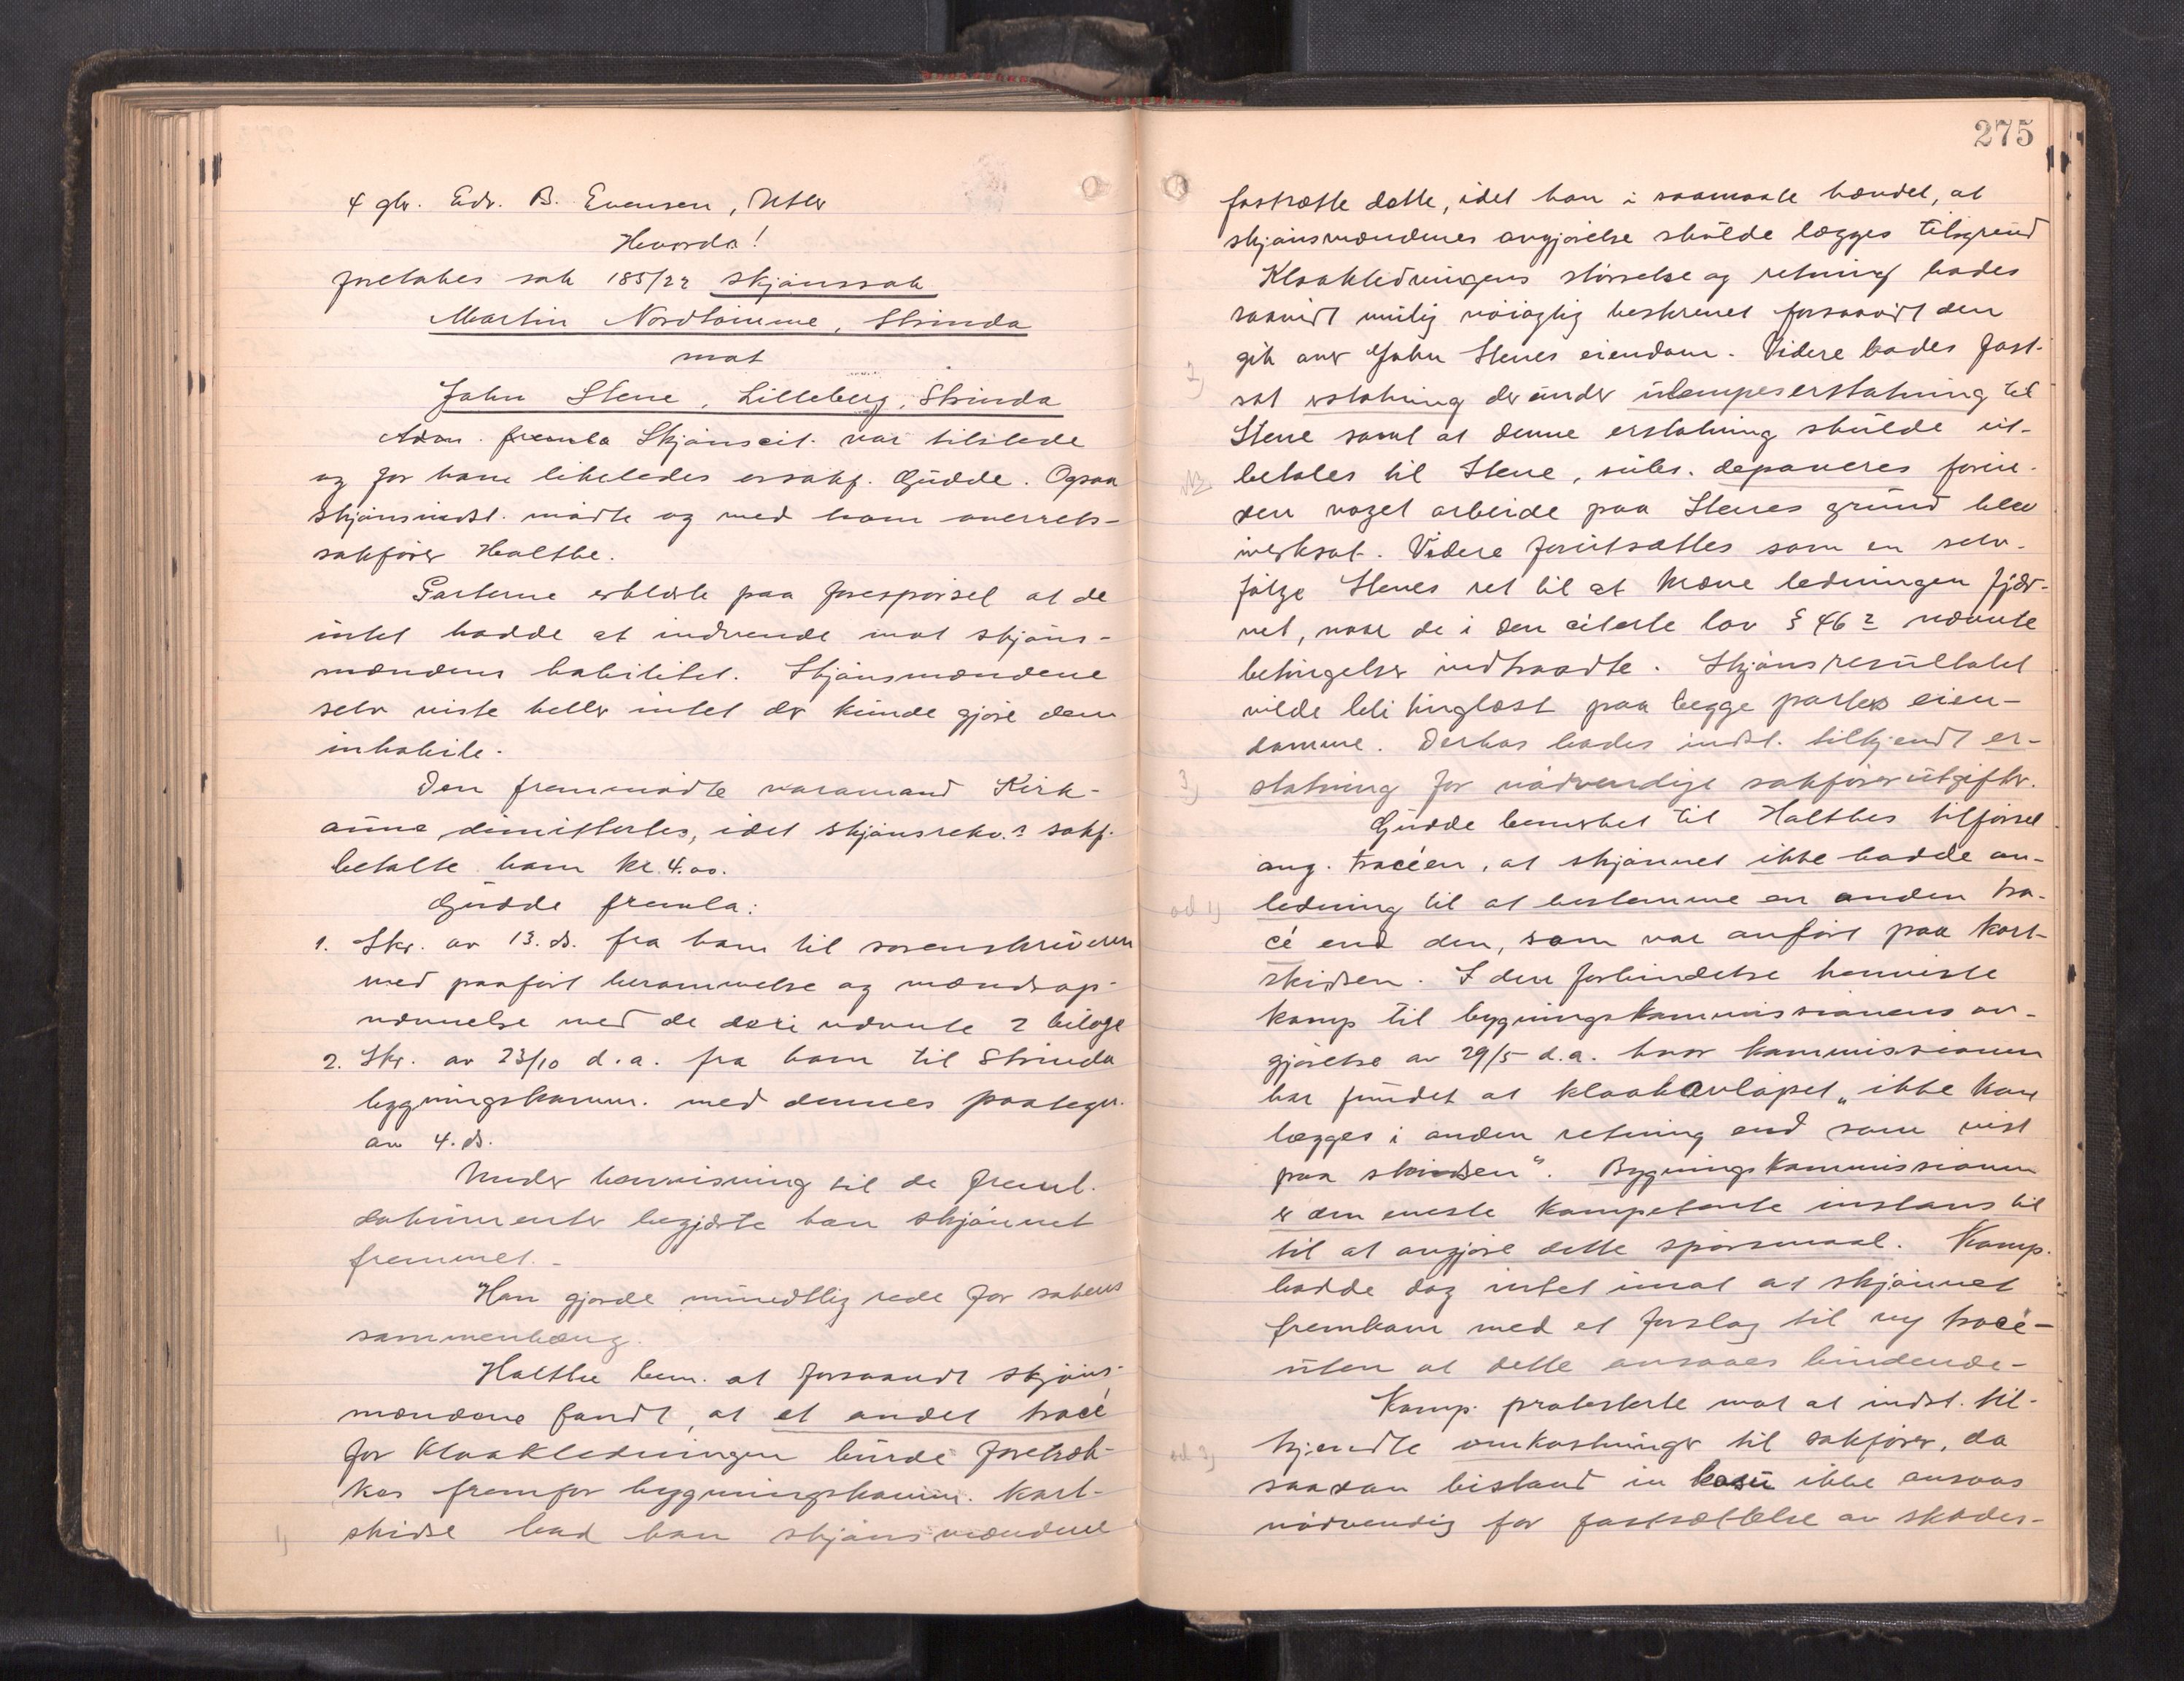 4 gbr. Edv. B. Evensen, Utler
Hvorda!
foretokes sak 185/22 skjønssak
Martin Nordtømme, Strinda
mot
John Stene, Lilleberg, Strinda
Adm. fremla Skjønscit. var tilstede
og for ham likeledes orsakf. Gudde. Ogsaa
skjønsindst. møtte og med ham overrets-
sakfører Halthe.
Parterne erklærte paa forespørsel at de
intet hadde at indvende mot skjøns-
mændens habilitet. Skjønsmændene
selv viste heller intet der kunde gjøre dem
inhabile.
Den fremmødte varamand Kirk-
aune dimittertes, idet skjønsrekv.s sakf.
betalte ham kr. 4.00.
Gudde fremla:
1. Skr. av 13. ds. fra ham til sorenskriveren
med paaført berammelse og mændsop-
nævnelse med de deri nævnte 2 bilage
2. Skr. av 23/10 d.a. fra ham til Strinda
bygningskomm. med dennes paategn.
av 4. ds.
Under henvisning til de freml.
dokumenter begjærte han skjønnet
fremmet. -
Han gjorde mundtlig rede for sakens
sammenhæng.
Halthe bem. at forsaavidt skjøns-
mændene fandt, at et andet tracé
for kloakledningen burde foretræk-
kes fremfor bygningskomm. kart-
1) skidse bad han skjønsmændene
275
fastsætte dette, idet han i saamaate hævdet, at
skjønsmændenes avgjørelse skulde lægges tilgrund
Kloakledningens størrelse og retning bades
saavidt mulig nøiagtig beskrevet forsaavidt den
gik over John Stenes eiendom. Videre bades fast-
2) sat erstatning derunder ulempeserstatning til
Stene samt at denne erstatning skulde ut-
NB betales til Stene, subs. deponeres foren-
den noget arbeide paa Stenes grund blev
iverksat. Videre forutsattes som en selv-
følge Stenes ret til at kræve ledningen fjær-
net, naar de i den citerte lov § 46 2 nævnte
betingelser indtraadte. Skjønsresultatet
vilde bli tinglæst paa begge parters eien-
domme. Derhos bades indst. tilkjendt er-
3) statning for nødvendige sakførerutgifter.
Gudde bemerket til Halthes tilførsel
ang. tracéen, at skjønnet ikke hadde an-
ad 1) ledning til at bestemme en anden tra-
cé end den, som var anført paa kart-
skidsen. I den forbindelse henviste
komp til bygningskommissionens av-
gjørelse av 29/5 d.a. hvor kommissionen
har fundet at kloakavløpet „ikke kan
lægges i anden retning end som vist
paa skidsen". Bygningskommissionen
er den eneste kompetente instans til
til at avgjøre dette spørsmaal. Komp.
hadde dog intet imot at skjønnet
fremkom med et forslag til ny tracé -
uten at dette ansaaes bindende -
Komp. protesterte mot at indst. til-
ad 3) kjendte omkostninger til sakfører, da
saadan bistand in casu ikke ansaas
nødvendig for fastsættelse av skades-